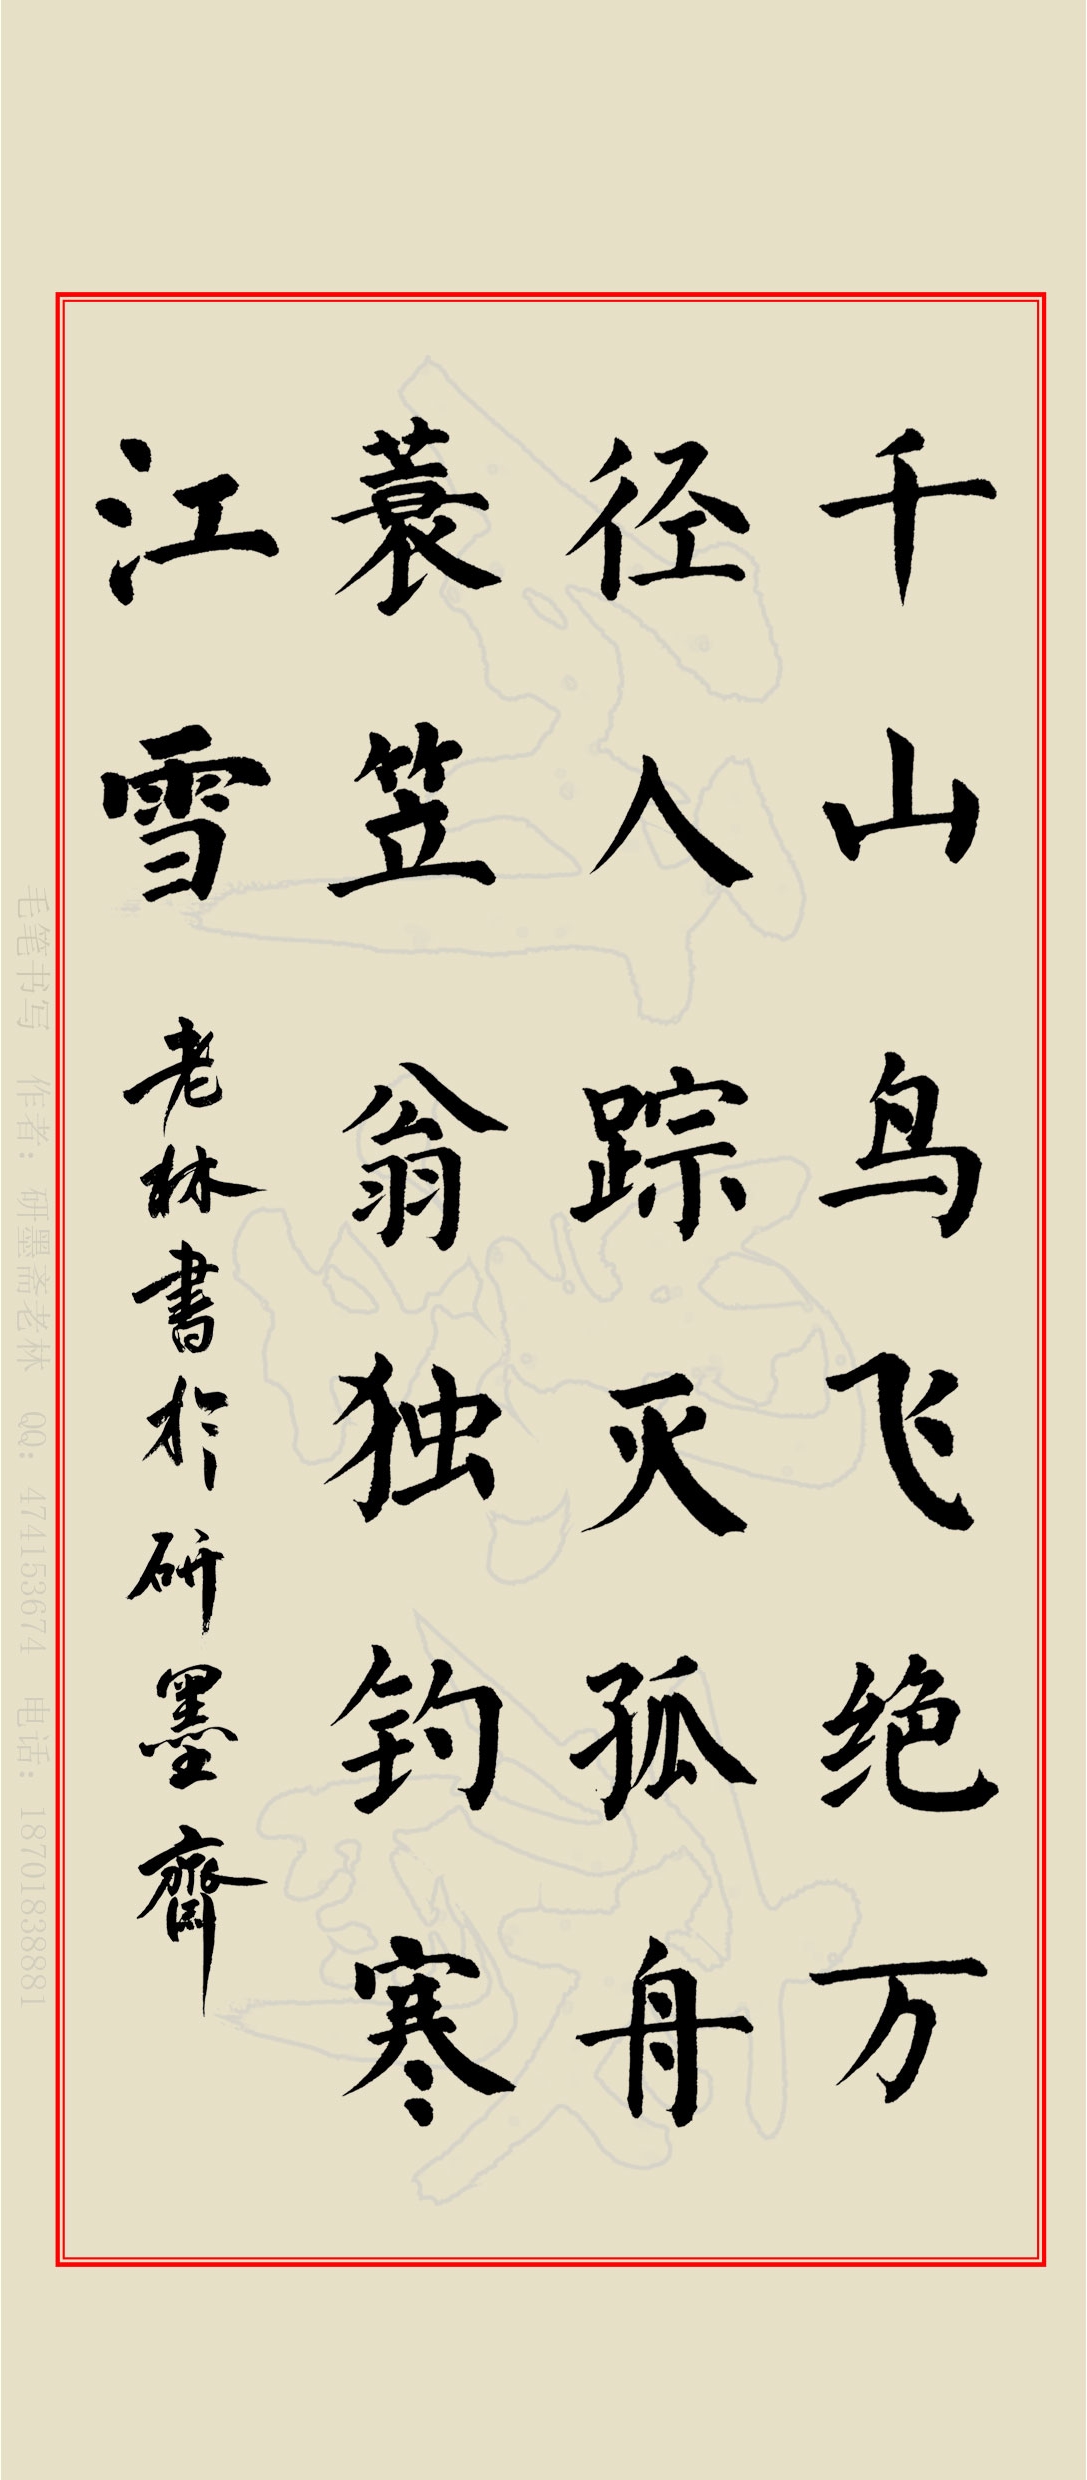 千山鸟飞绝万
径人踪灭孤舟
蓑笠翁独钓寒
江雪
老林書於研墨齋
毛笔书写 作者：研墨斋老林 QQ：474153674 电话：18701838881